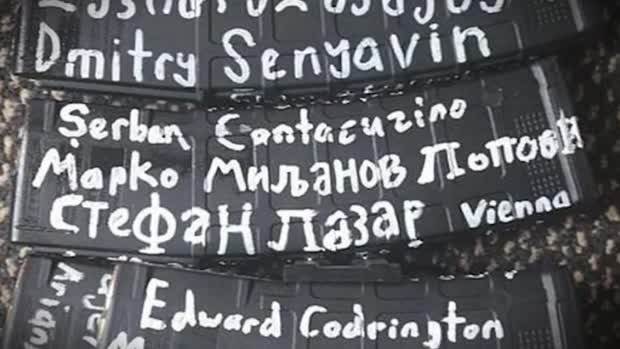 Dmitry Senyavin
Şerban Cantacuzino
Марко Миљанов Попови
Стефан Лазар Vienna
Edward Codrington